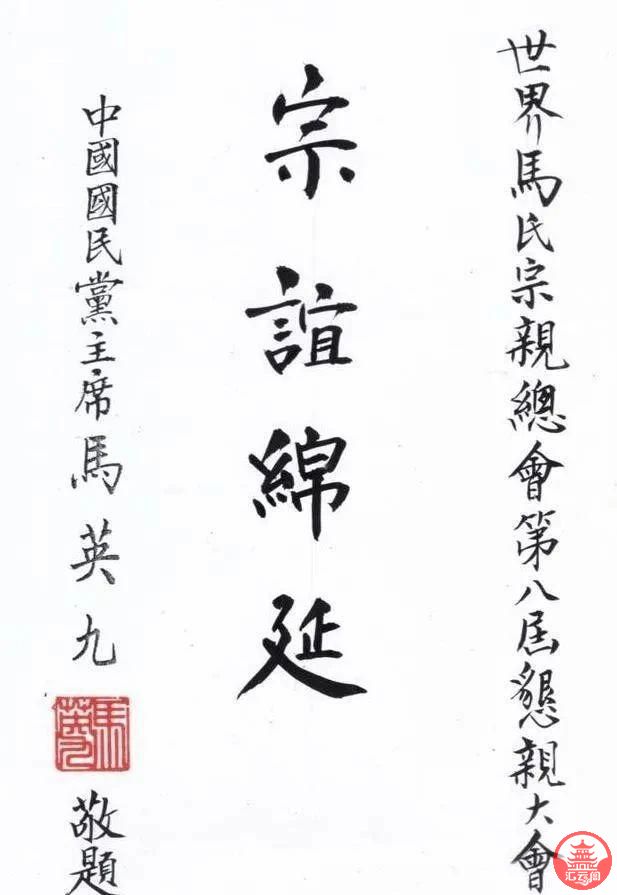 世界馬氏宗親總會第八屆懇親大會
宗誼綿延
中國國民黨主席馬英九
馬英九
敬題
汇云阁